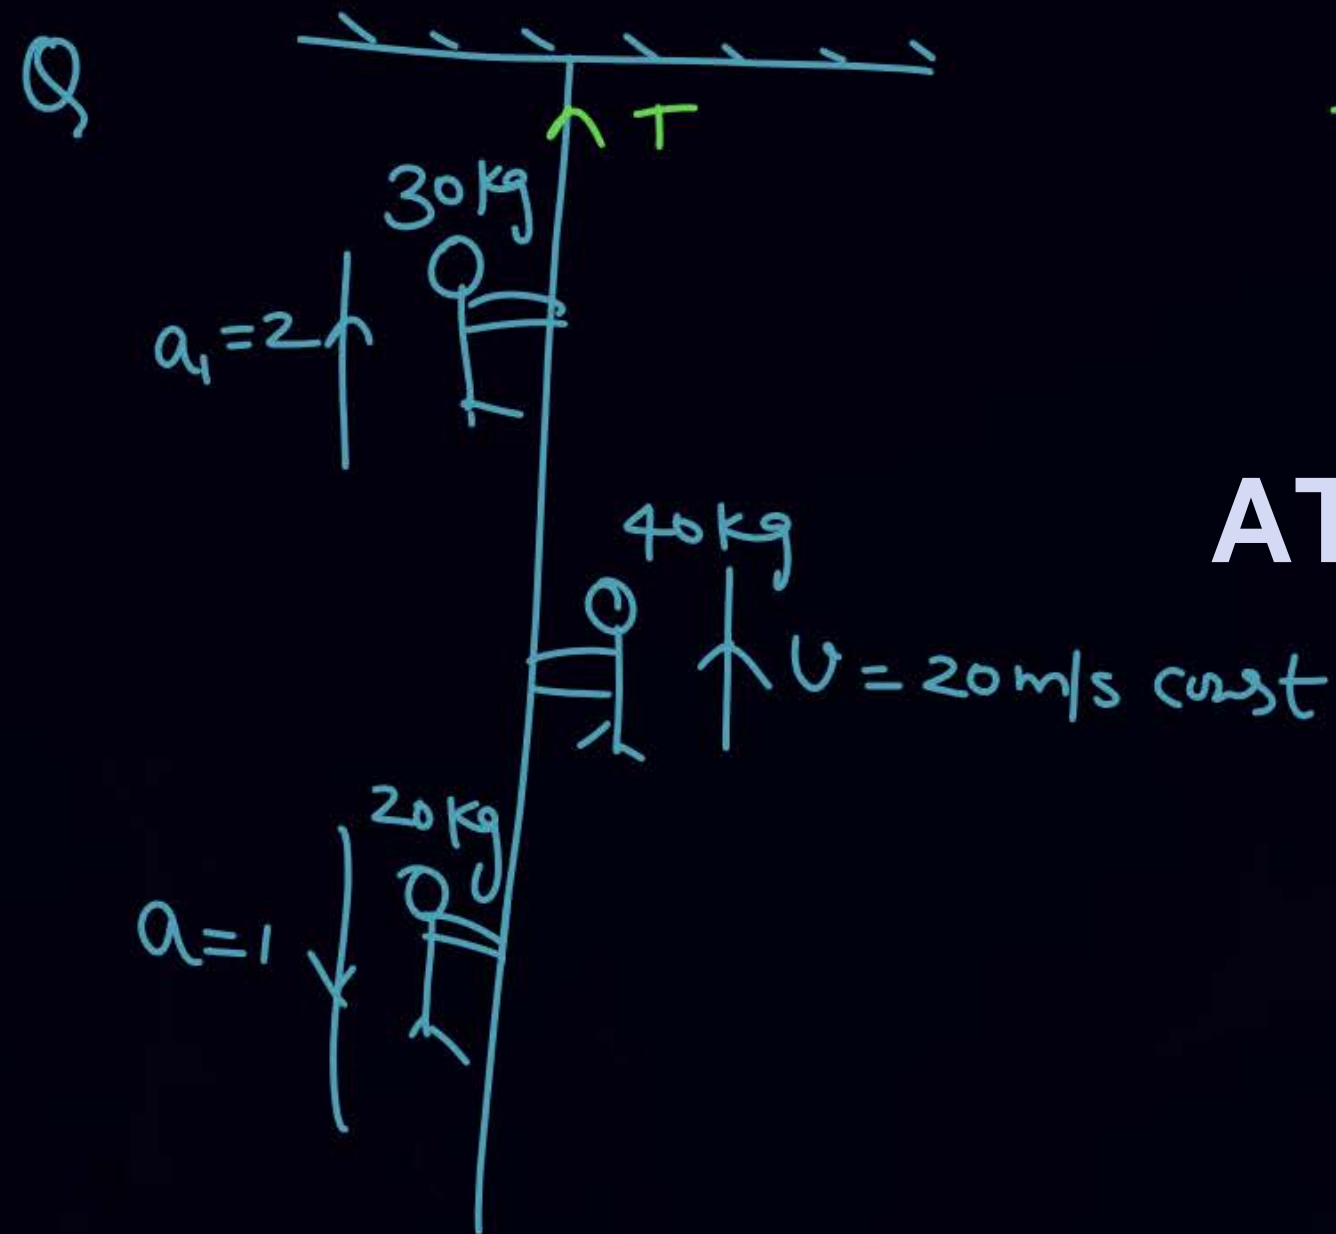 Q
T
30 kg
a₁ = 2
AT
40 kg
v = 20 m/s const
20 kg
a = 1